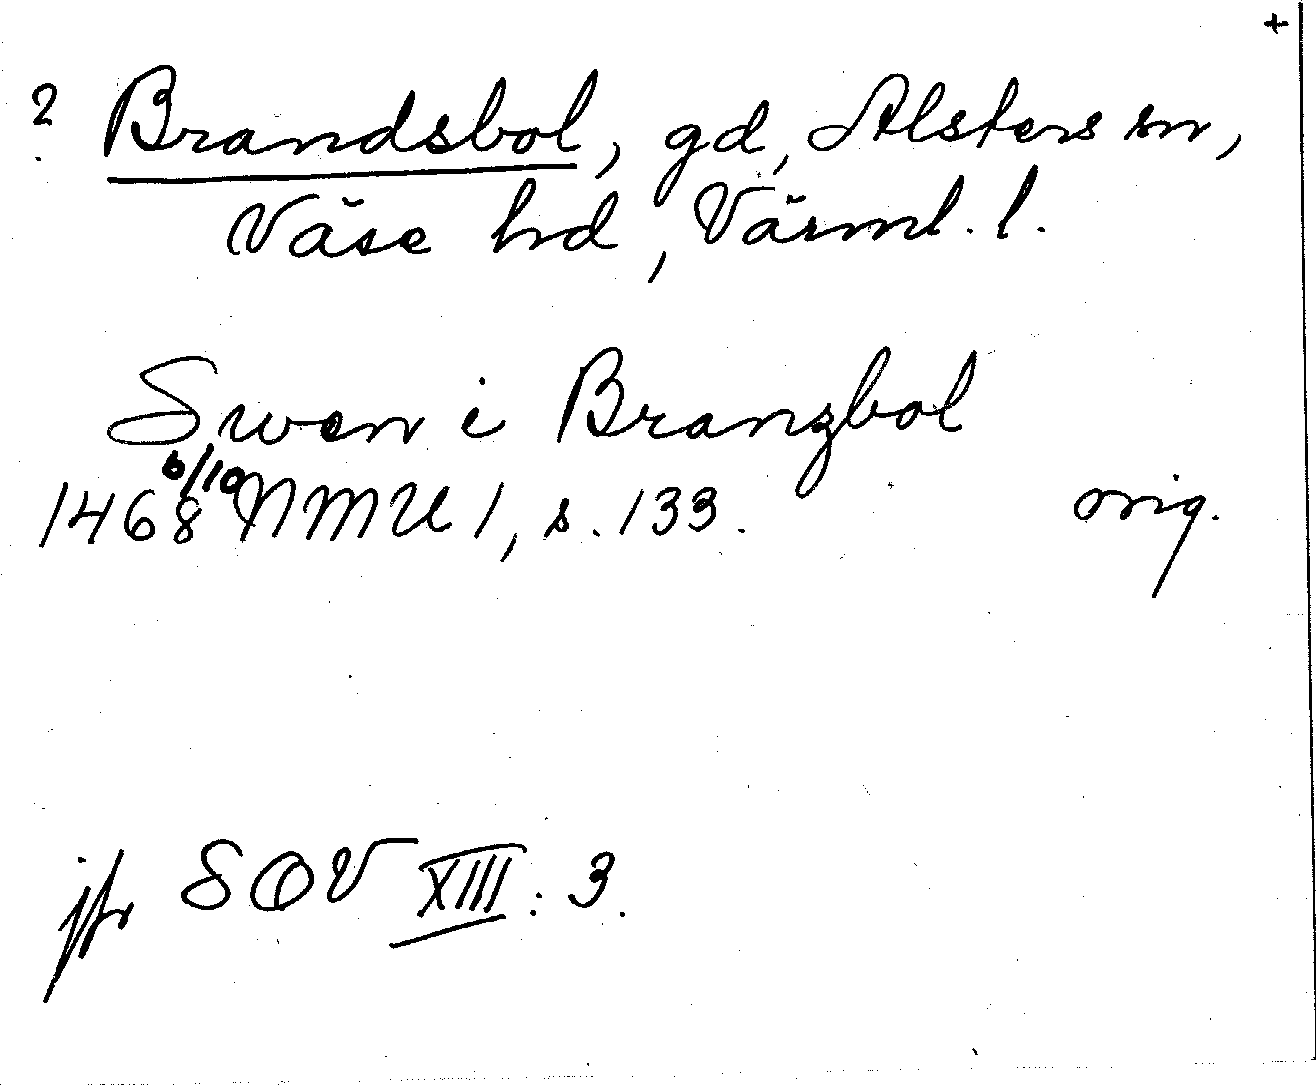 +
? Brandsbol, gd, Alsters sn,
Väse hd, Värml. l.
Swen i Branzbol
1468 6/10 NMU 1, s. 133. orig.
jfr SOV XIII: 3.